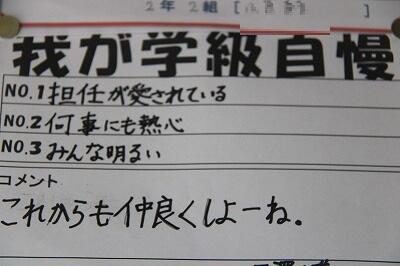 2年 2組 [ ]
我が学級自慢
NO.1 担任が愛されている
NO.2 何事にも熱心
NO.3 みんな明るい
コメント
これからも仲良くしよーね。